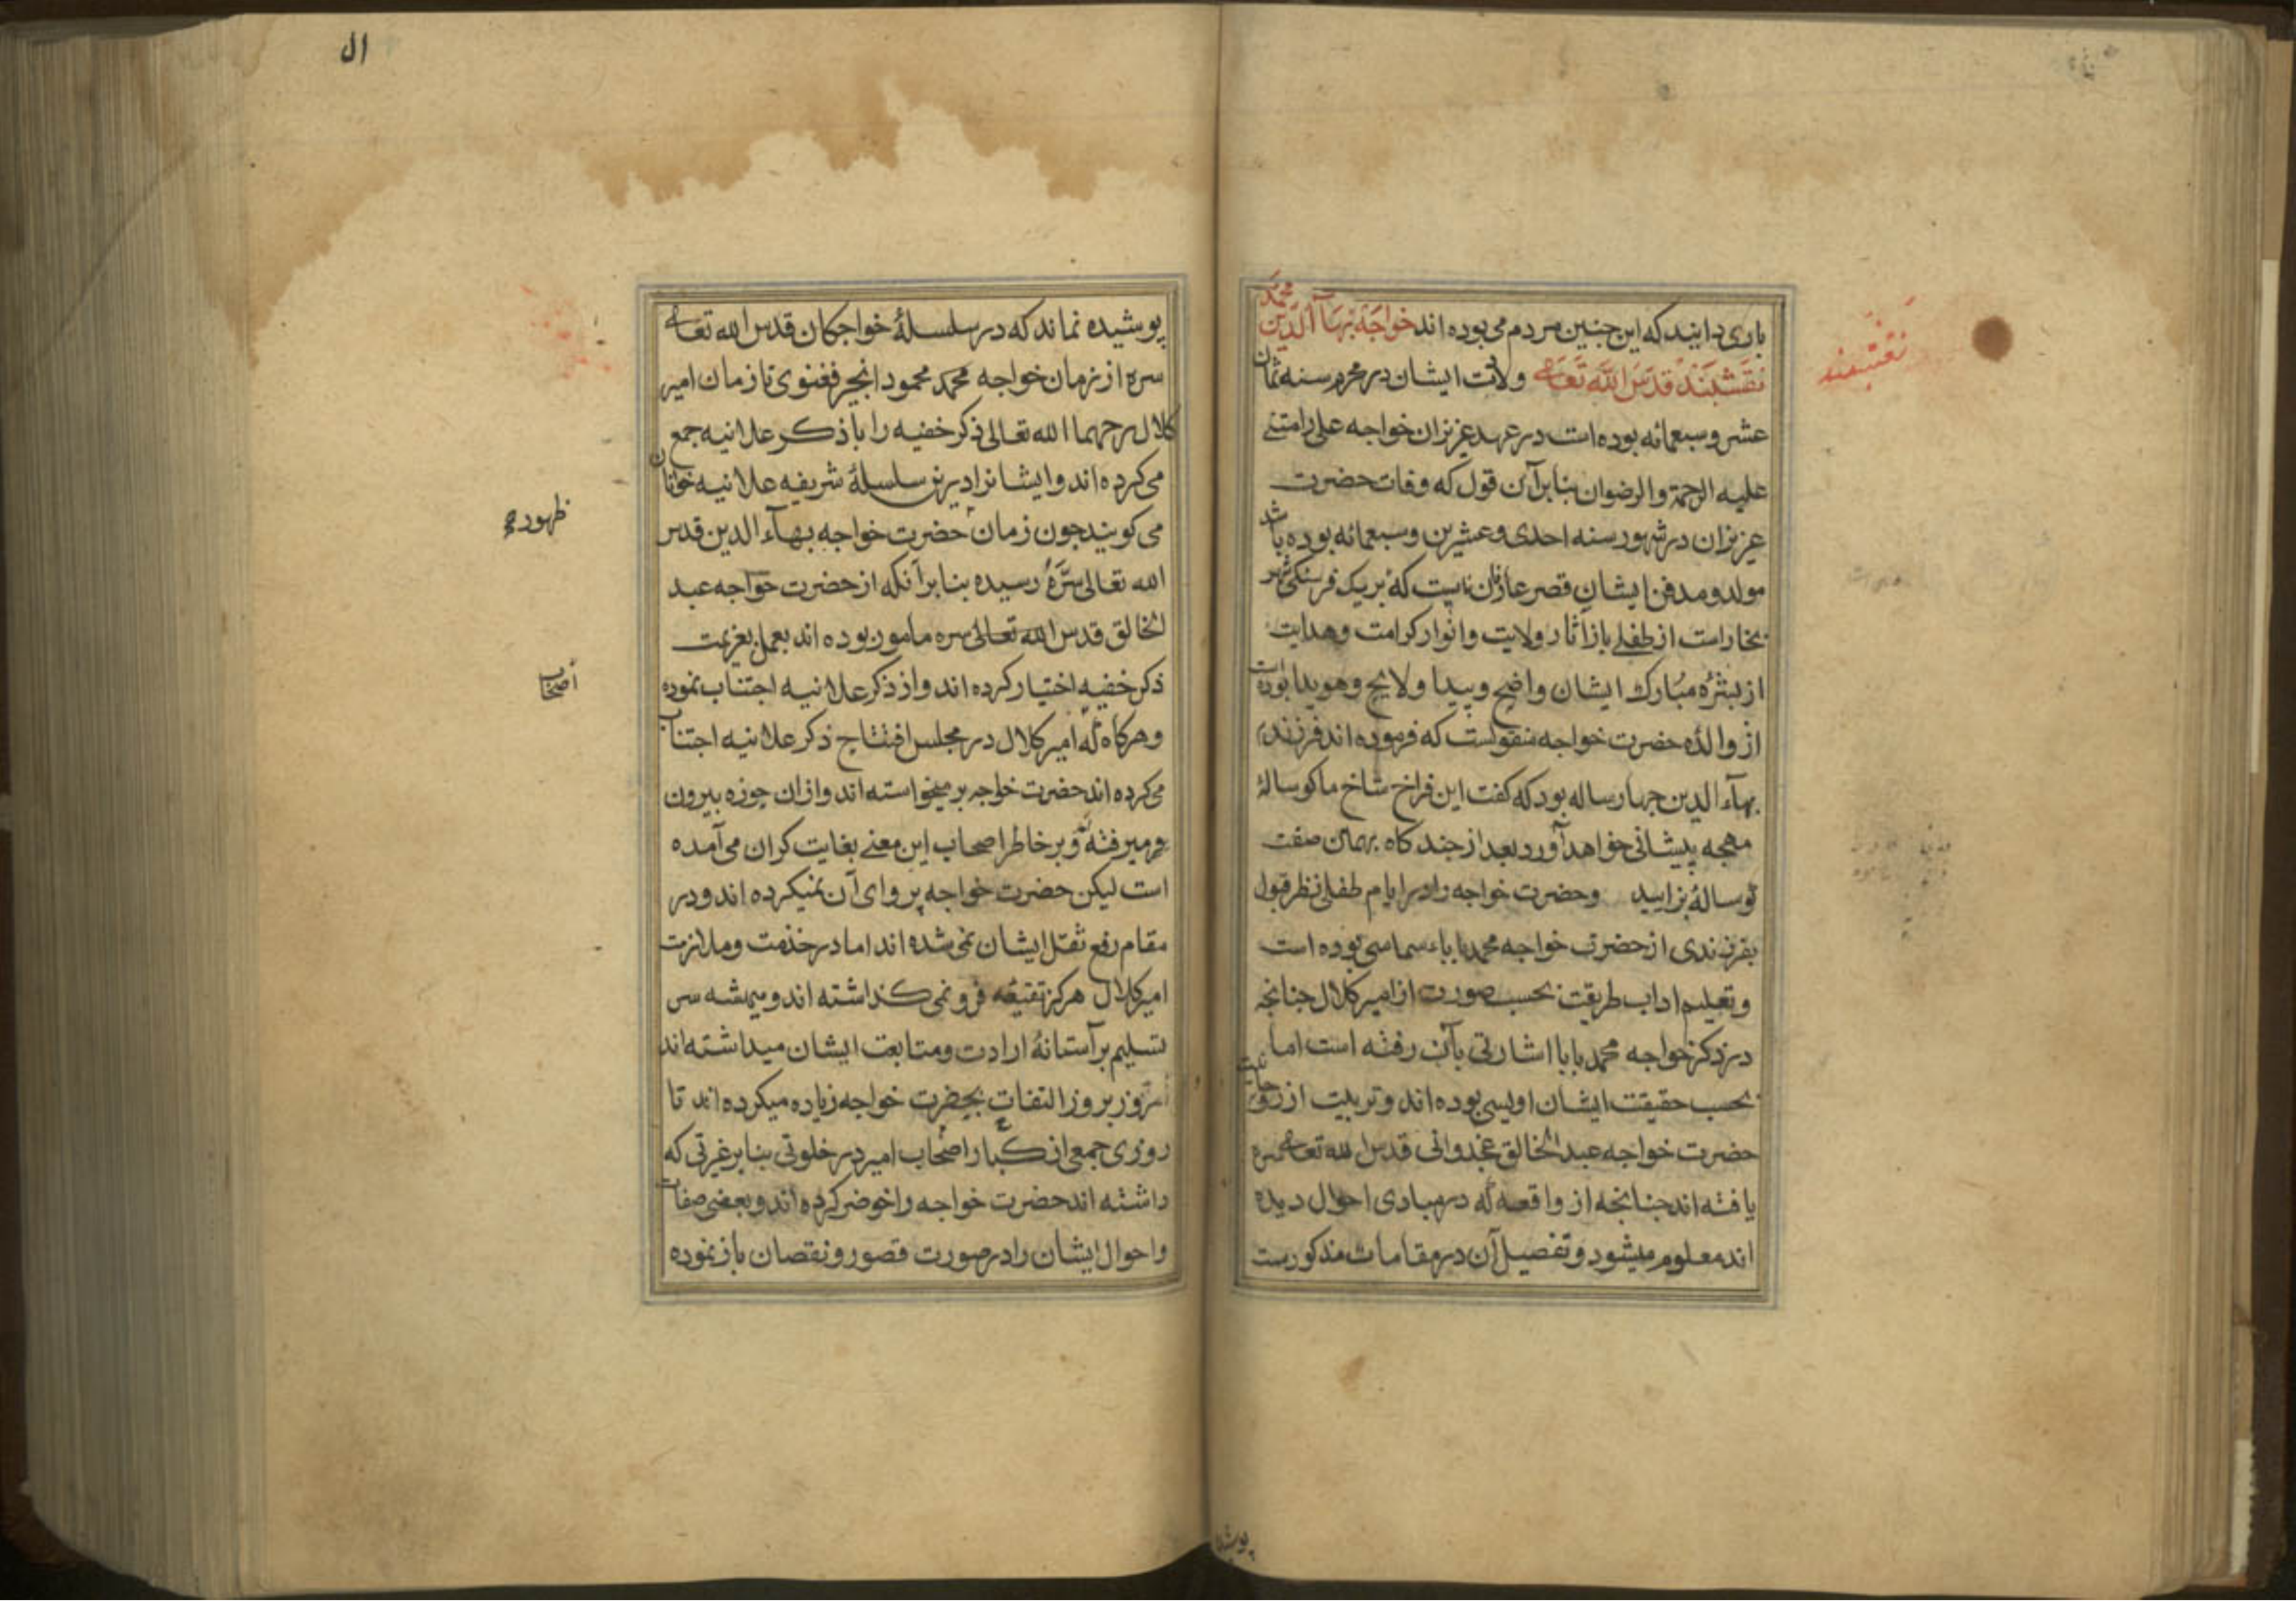 باری دانید که این جنین مردم می بوده اند خواجه بهاآالدین محمد
نقشبند قدس الله تعالی ولادت ایشان در محرم سنه ثمان
عشر وسبعمائه بوده است در عهد عزیزان خواجه علی رامتنی
علیه الرحمة والرضوان بنابرآن قول که وفات حضرت
عزیزان در شهور سنه احدی وعشرین وسبعمائه بوده باشد
مولد ومدفن ایشان قصر عارفان است که بریک فرسنکی شهر
بخاراست از طفلی باز آثار ولایت وانوار کرامت وهدایت
از بشرۀ مبارک ایشان واضح وپیدا ولایح وهویدا بوده است
از والدۀ حضرت خواجه منقولست که فرموده اند فرزندم
بهآء الدین جهار ساله بود که کفت این فراخ شاخ ما کوسالۀ
پیشانی خواهد آورد بعد از جند کاه بهمان صفت
کوسالۀ بزایید وحضرت خواجه را در ایام طفلی نظر قبول
بفرزندی از حضرت خواجه محمد بابا سماسی بوده است
وتعلیم اداب طریقت بحسب صورت از امیر کلال جنانجه
در ذکر خواجه محمد بابا اشارتی بآن رفته است اما
بحسب حقیقت ایشان اویسی بوده اند وتربیت از روحانیت
حضرت خواجه عبد الخالق غجدوانی قدس الله تعالی سره
یافته اند جنانجه از واقعه که در مبادی احوال دیده
اند معلوم میشود وتفصیل آن در مقامات مذکورست
نقشبند
پوشیده
ال
پوشیده نماند که در سلسلۀ خواجکان قدس الله تعالی
سره از زمان خواجه محمد محمود انجیر فغنوی تا زمان امیر
کلال رحمهما الله تعالی ذکر خفیه را با ذکر علانیه جمع
می کرده اند وایشانرا درین سلسلۀ شریفه علانیه خوانان
می کویند جون زمان حضرت خواجه بهآء الدین قدس
الله تعالی سره رسیده بنابر آنکه از حضرت خواجه عبد
الخالق قدس الله تعالی سره مامور بوده اند بعمل بعزیمت
ذکر خفیه اختیار کرده اند واز ذکر علانیه اجتناب نموده
وهرکاه که امیر کلال در مجلس افتتاح ذکر علانیه اجتناب
می کرده اند حضرت خواجه بر میخواسته اند وازان حوزه بیرون
میرفته وبر خاطر اصحاب این معنی بغایت کران می آمده
است لیکن حضرت خواجه پروای آن نمیکرده اند ودر
مقام رفع ثقل ایشان نمی شده اند اما در خدمت وملازمت
امیر کلال هرکز دقیقه فرو نمی کذاشته اند وهمیشه سر
تسلیم بر آستانۀ ارادت ومتابعت ایشان میداشته اند
روز بروز التفات بحضرت خواجه زیاده میکرده اند تا
روزی جمعی از کبار اصحاب امیر در خلوتی بنابر غیرتی که
داشته اند حضرت خواجه را خوض کرده اند وبعضی صفات
واحوال ایشان را در صورت قصور ونقصان باز نموده
ظهور
اصحاب